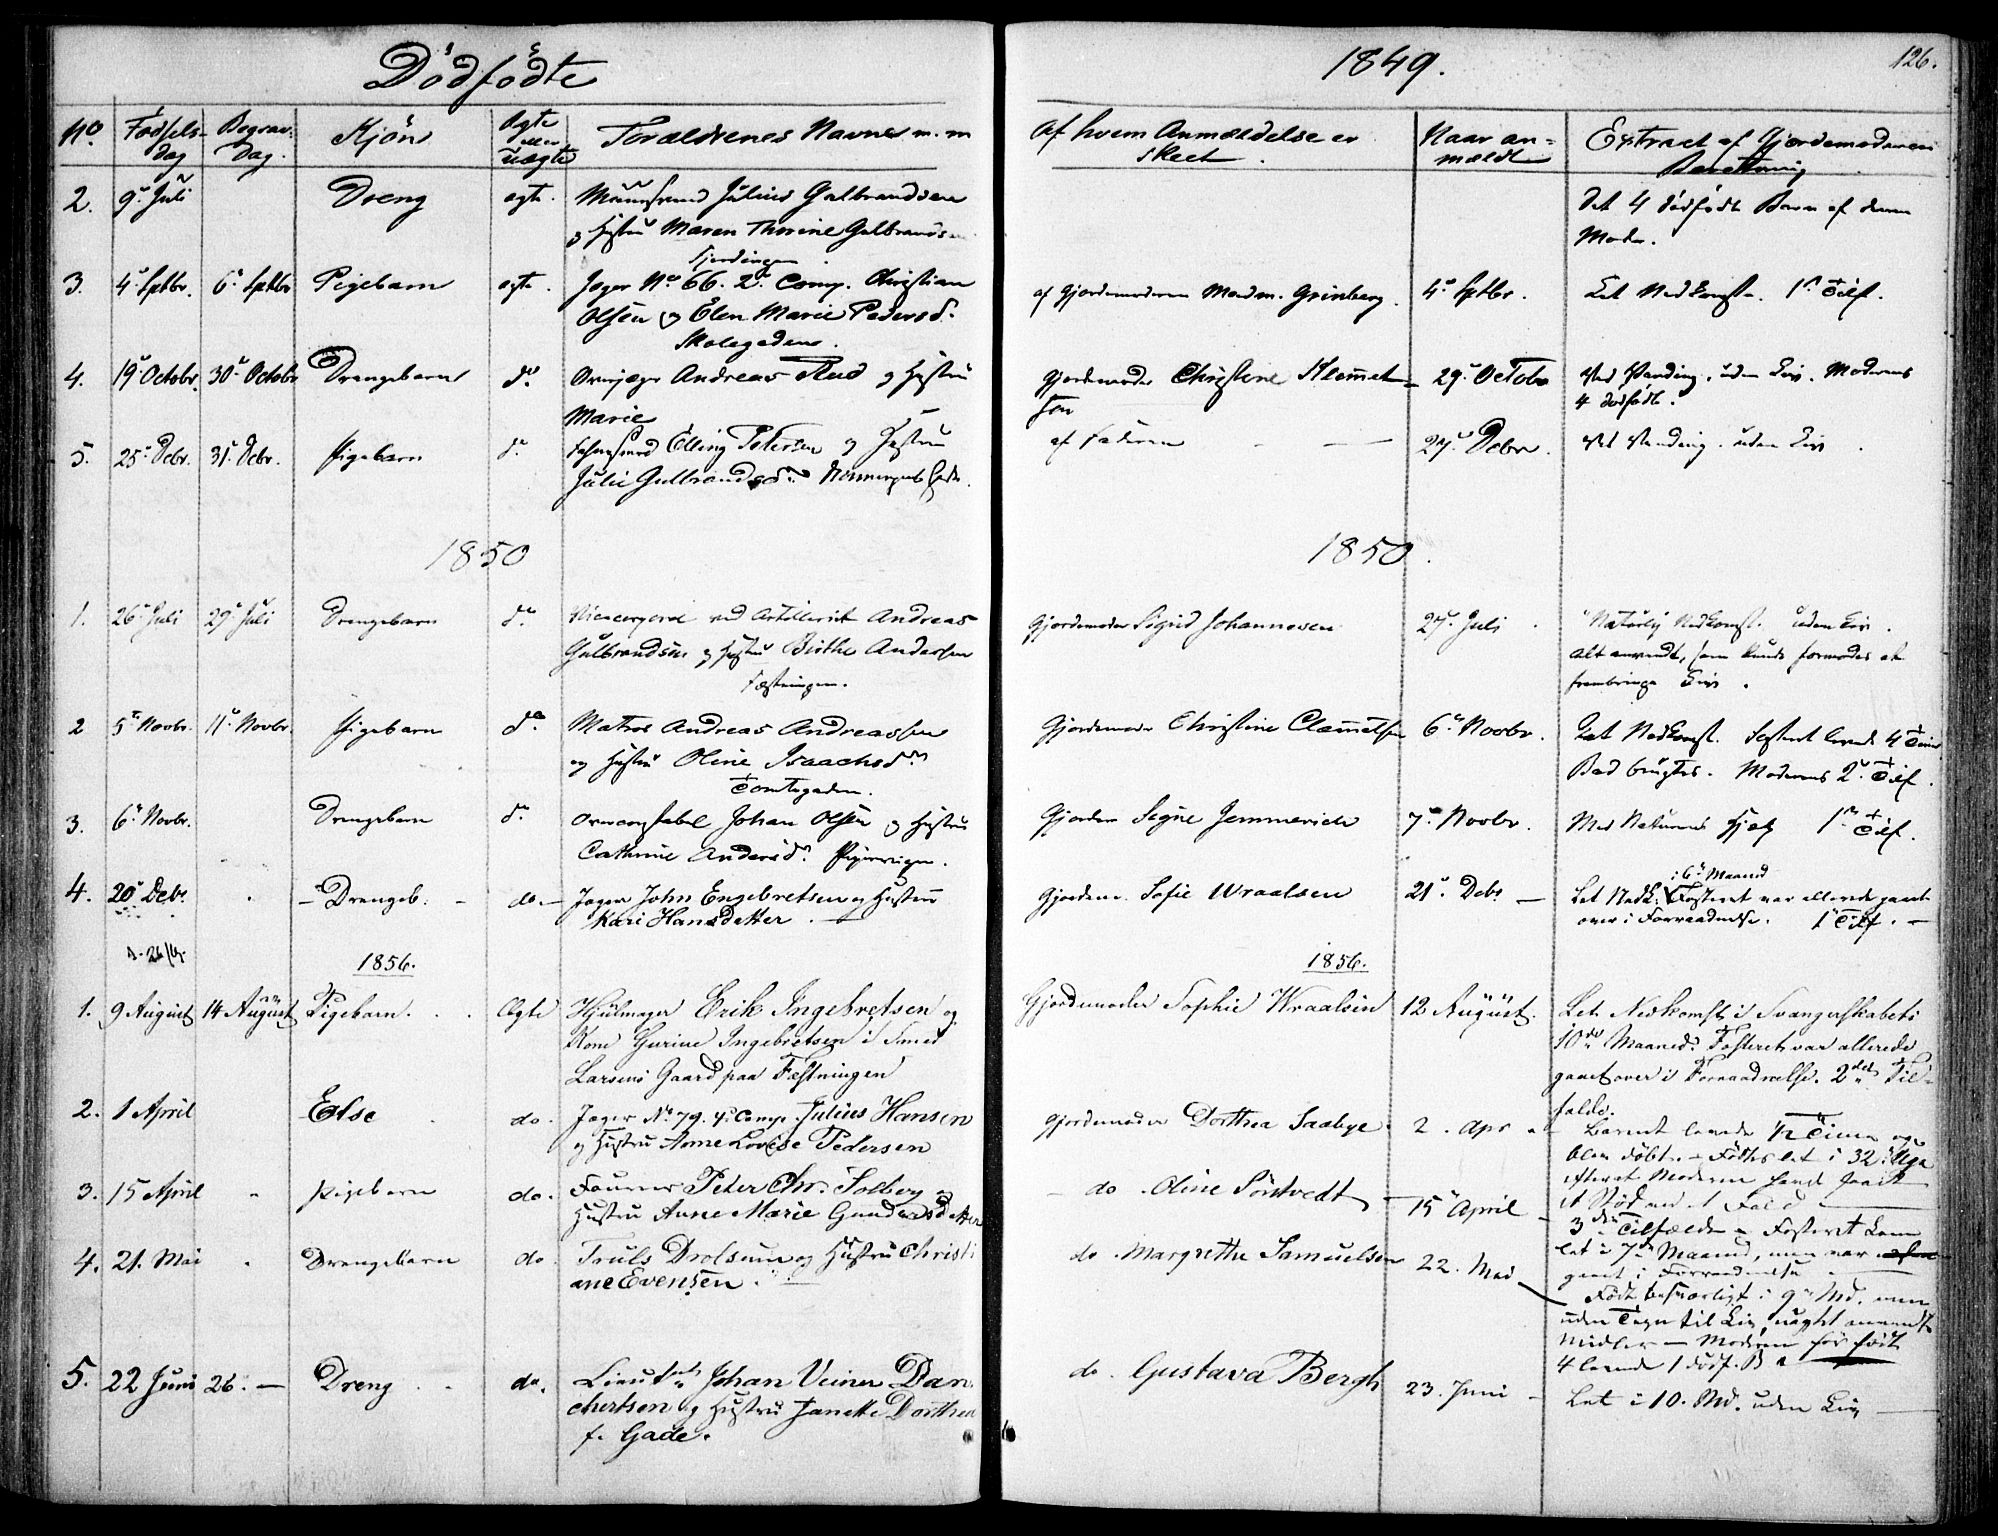 Dødfødte
1849.
126.
No
Fødsels-
dag
Begrav.
Dag.
Kjøn
Ægte
eller
uægte
Forældrenes Navne m. m
Af hvem Anmældelse er
skeet.
Naar an=
mældt
Extract af Gjordemoderens
Beretning
2. 9de Juli Dreng ægte. Julius Gulbrandsen
og Hustru Maren Thorine Gulbrandsen
Det 4 dødfødte Barn af denne
Moder.
3. 4de Septbr. 6te Septbr Pigebarn ægte. Jæger No 66. 2d Comp. Christian
Olsen og Elen Marie Pedersd.
af Gjordemoderen Madm. Grinberg. 4de Septbr. Let Nedkomst. 1ste Tilf.
Skolegaden.
4. 19de Octobr. 30te Octobr Drengebarn do. Andreas Ruud og Hustru
Marie
Gjordemoder Christine Klemmet=
sen
29de October Ved Vending, uden Liv. Moderens
4 dødfødte.
5. 25de Decbr. 31. Decbr. Pigebarn do. Elling Petersen og Hustru
Julie Gulbrandsd.
af Faderen — — 27de Decbr. Ved Vending. uden Liv.
1850
1850.
1. 26de Juli 29de Juli Drengebarn do. ved Artilleriet Andreas
Gulbrandsen og Hustru Birthe Andersen
Fæstningen.
Gjordemoder Sigrid Johannesen 27de Juli. Naturlig Nedkomst. uden Liv.
Alt anvendt, som kunde formodes at
frembringe Liv.
2 5te Novbr. 11te Novbr. Pigebarn do. Matros Andreas Andreassen
og Hustru Oline Isaachsd.
Tomtegaden.
Gjordemoder Christine Clemmetsen 6te Novbr. Let Nedkomst. Fosteret levede 4 Timer
Bad brugtes. Moderens 2det Tilf.
3. 6te Novbr. Drengebarn do. Johan Olsen og Hustru
Cathrine Andersd.
Gjordem Signe Jemmerich 7de Novbr. Med Naturens Hjelp 1ste Tilf.
4. 20de Decbr. — Drengeb. — do. — Jæger John Engebretsen og Hustru
Kari Hansdatter. —
Gjordem. Sofie Wraalsen 21de Decbr. —
i 6te Maaned
Let Nedk. Fosteret var allerede gaaet
over i Forraadnelse. 1ste Tilf. —
1856.
1856.
1. 9 August 14 August Pigebarn. Ægte Hjulmager Erik Ingebretsen og
Kone Gurine Ingebretsen i Smed
Larsens Gaard paa Fæstningen
Gjordemoder Sophie Wraalsen 12 August. Let Nedkomst i Svangerskabets
10de Maaned. Fosteret var allerede
gaaet over i Forraadnelse. 2det Til-
fælde.
2. 1 April Else do. Jæger No 79. 4de Comp. Julius Hansen
og Hustru Anne Lovise Pedersen
Gjordemoder Dorthea Saabye. 2. Apr. — Barnet levede ½ Time og
blev døbt. — Fødtes let i 32 Uge
efterat Moderen havde faaet
et Stød ved et Fald
3. 15 April Pigebarn do. Peter Chr. Solberg og
Hustru Anne Marie Gundersdatter
do. Oline Sørtvedt — 15 April — 3die Tilfælde — Fosteret kom
let i 7de Maaned, men var
gaaet i Forraadnelse
4. 21. Mai Drengebarn do. Truls Drolsum og Hustru Christi
ane Evensen. —
do. Margrethe Samuelsen 22. Mai — Født besværligt i 9de Md. men
uden Tegn til Liv, uagtet anvendte
Midler — Moderen før født
4 levende 1 dødf. B
5. 22 Juni 26. — Dreng do. Lieutnt Johan Veiner Dan
chertsen og Hustru Janette Dorthea
f. Gade.
do. Gustava Bergh 23. Juni — Let i 10. Md. uden Liv —